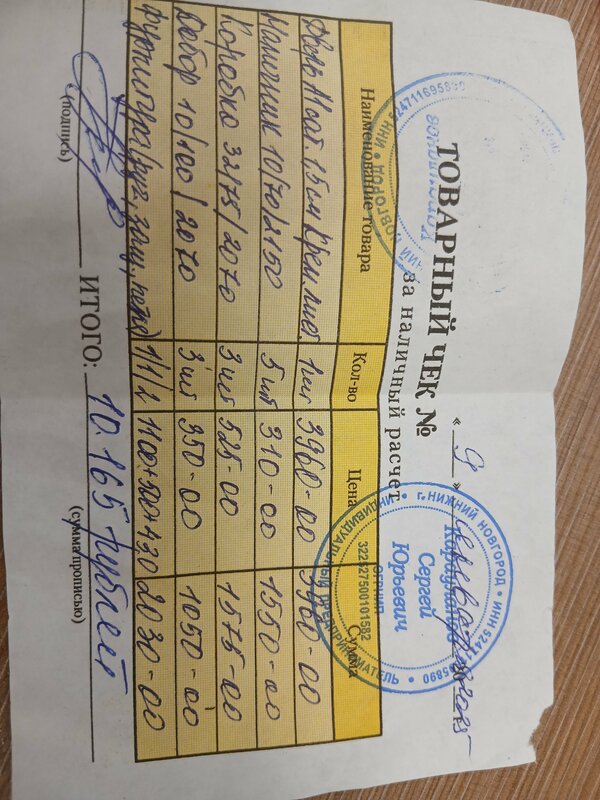 ТОВАРНЫЙ ЧЕК №
« 9 » 2025
за наличный расчет
Наименование товара Кол-во Цена Сумма
Дверь 1шт 3960-00 3960-00
Наличник 10/70/2150 5 шт 310-00 1550-00
Коробка 32/75/2070 3 шт 525-00 1575-00
Добор 10/100/2070 3 шт 350-00 1050-00
Фурнитура 1/1/1 1100+500+430 2030-00
ИТОГО: 10.165 рублей
(подпись) (сумма прописью)
г. НИЖНИЙ НОВГОРОД • ИНН
Сергей
Юрьевич
ОГРНИП
322527500101582
ИНДИВИДУАЛЬНЫЙ ПРЕДПРИНИМАТЕЛЬ